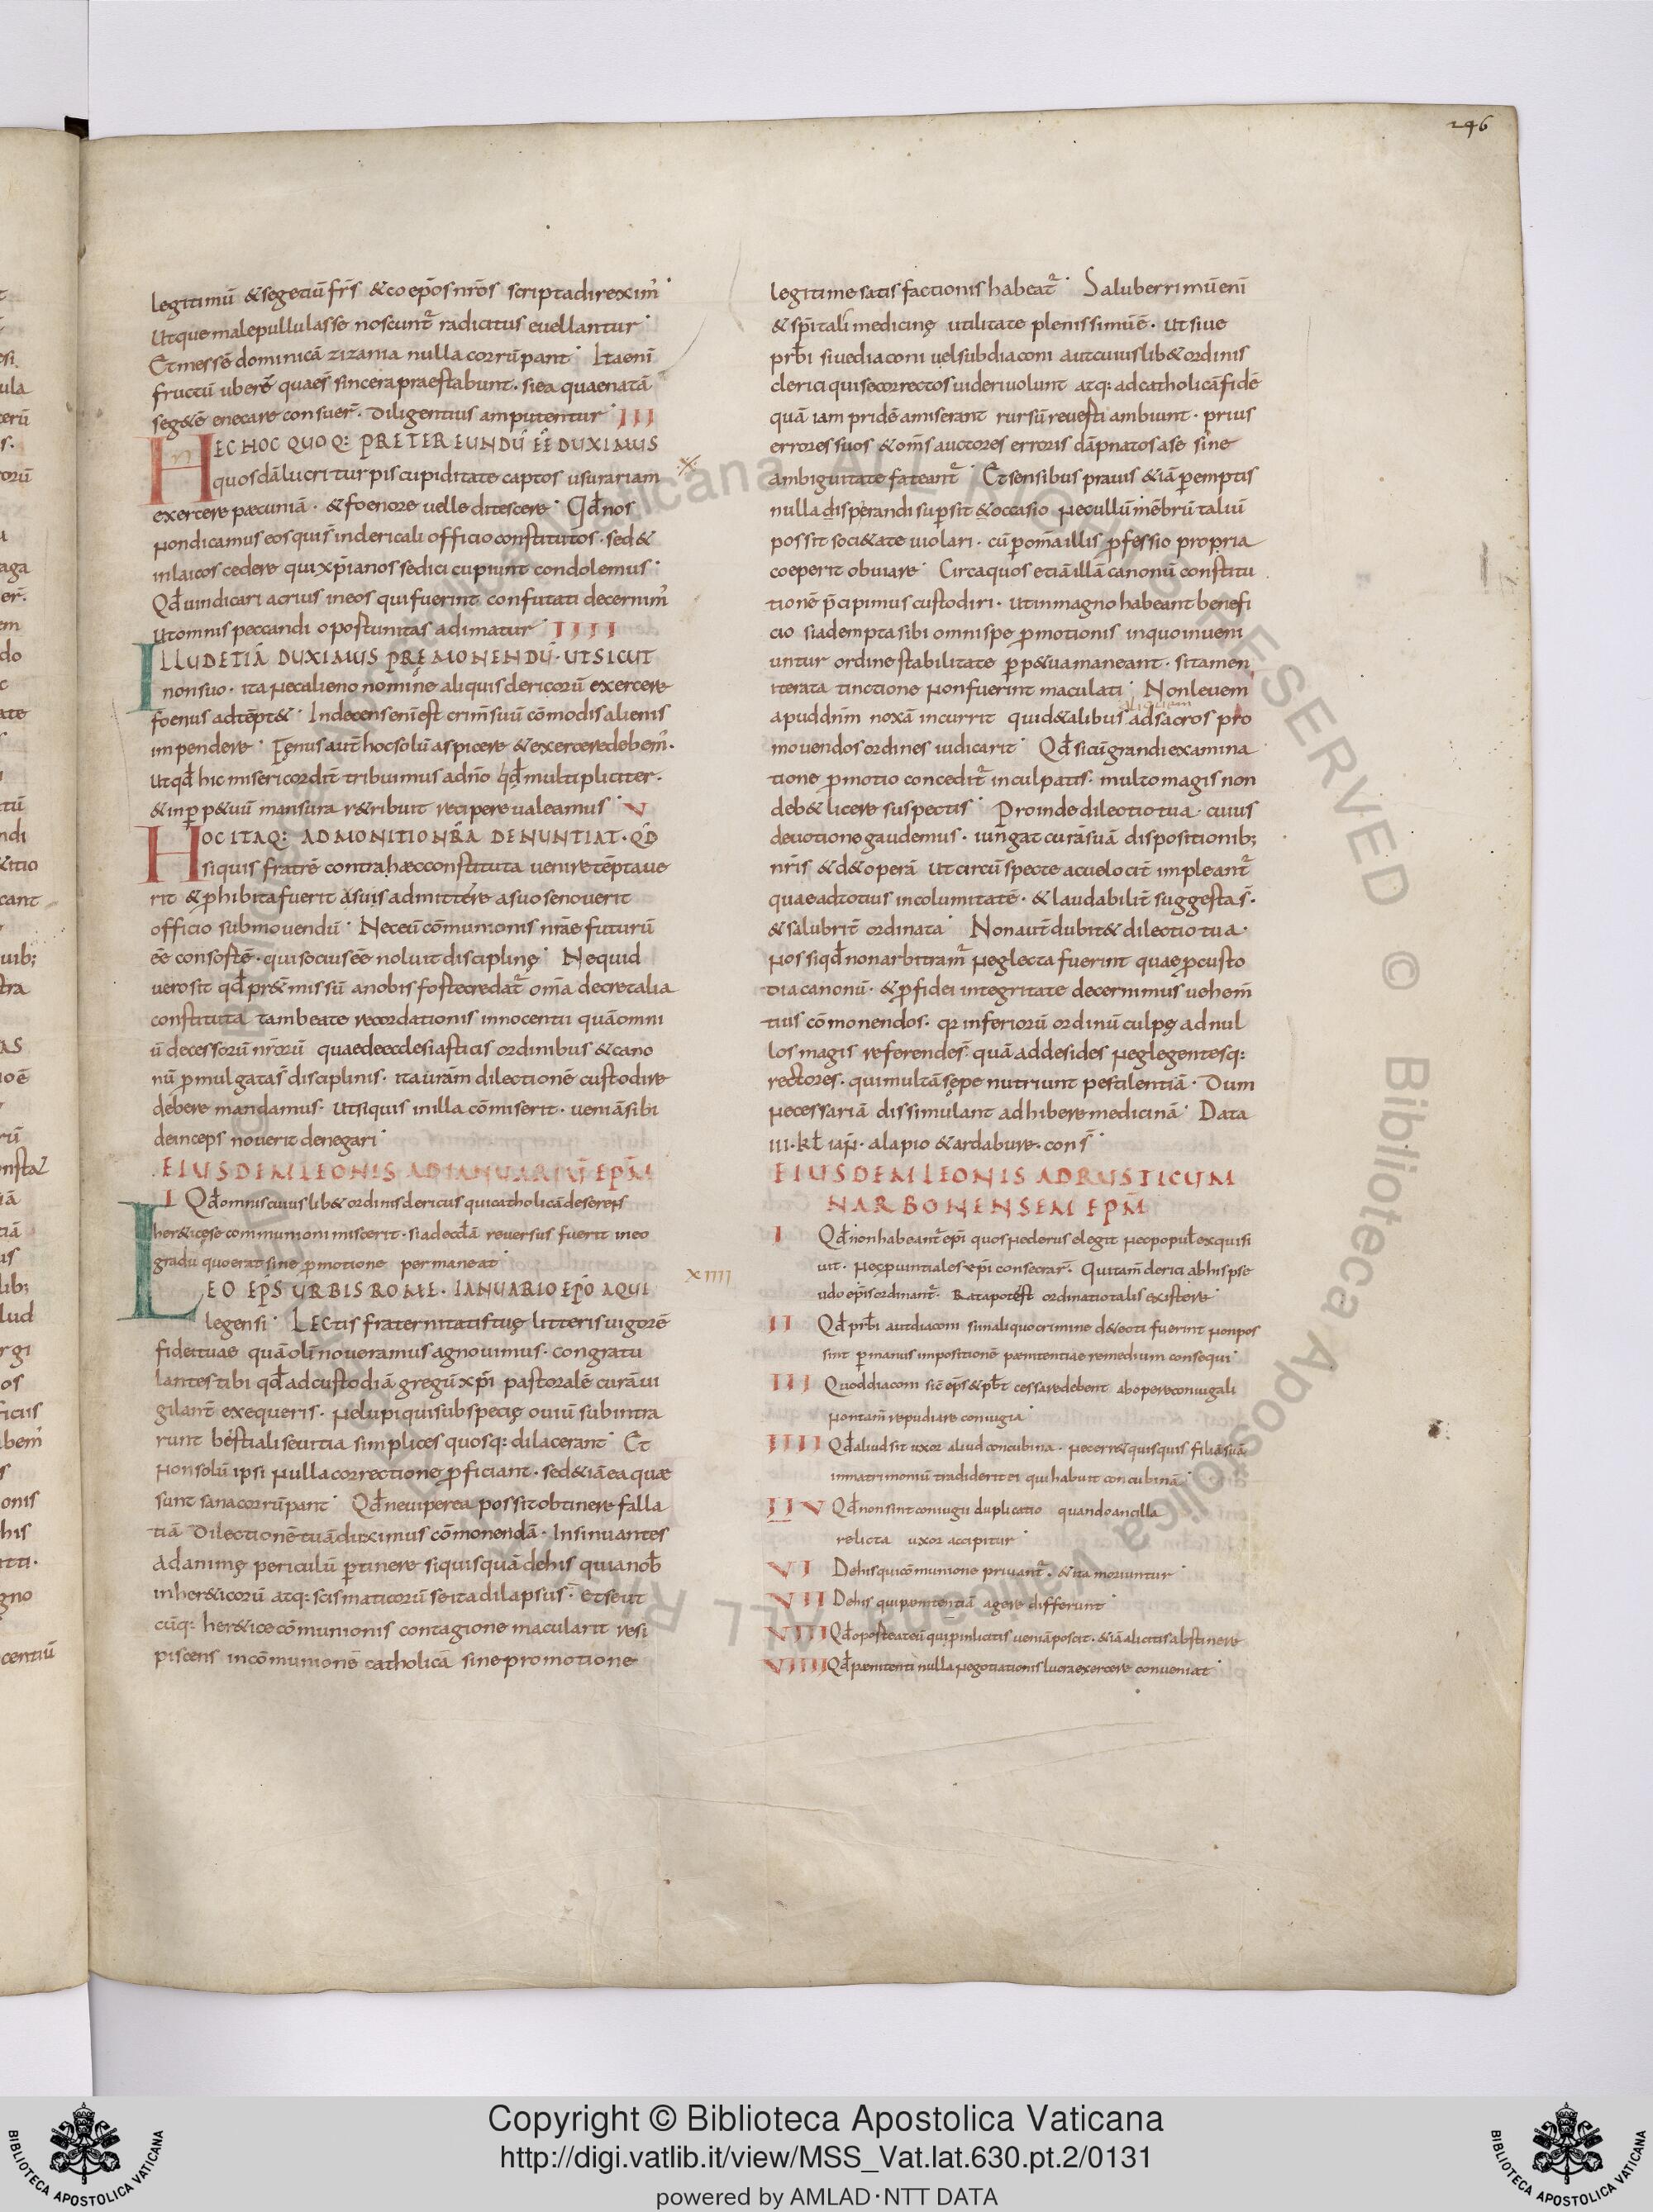 246
legitimū &segetiū fr̄s &coep̄os nr̄os scripta direxim᷒.
Utque male pullulasse noscunt᷒ radicitus euellantur.
Et messē dominicā zizania nulla corrūpant. Ita eni̅
fructū uberē quaes̄ sincera praestabunt. si ea quae natā
seg&ē enecare consuer̄. Diligentius amputentur. III
HEC HOC QUOQ: PRETEREUNDŪ EĒ DUXIMUS
quosdā lucri turpis cupiditate captos usurariam
exercere pecuniā. & foenore uelle ditescere. Qd̄ nos
non dicamus eos qui s̄ in clericali officio constitutos. sed &
in laicos cedere qui xp̄ianos se dici cupiunt condolemus.
Qd̄ uindicari acrius in eos qui fuerint confutati decernim᷒
ut omnis peccandi oportunitas adimatur. IIII
ILLUD ETIĀ DUXIMUS PRĘMONENDŪ. UT SICUT
non suo. ita nec alieno nomine aliquis clericorū exercere
foenus adtēpt&. Indecens enī est crim̄ suū cōmodis alienis
impendere. Fęnus aut̄ hoc solū aspicere & exercere debem᷒.
ut qd̄ hic misericordit̄ tribuimus ad n̄o qd̄ multipliciter.
& in p̄p&uū mansura r&ribuit recipere ualeamus. V
HOC ITAQ: ADMONITIO NR̄A DENUNTIAT. QD̄
siquis fratrē contra hæc constituta uenire tēptaue
rit & phibita fuerit a suis admittere a suo se nouerit
officio submouendū. Nec eū cōmunionis nr̄ae futurū
eē consortē. qui socius eē noluit disciplinę. Ne quid
uero sit qd̄ pr&missū a nobis forte credat᷒ om̄a decretalia
constituta tam beate recordationis innocentii quā omni
ū decessorū nr̄orū quae de ecclesiasticis ordinibus & cano
nū pmulgata s̄ disciplinis. ita ur̄am dilectionē custodire
debere mandamus. ut siquis in illa cōmiserit. ueniā sibi
deinceps nouerit denegari.
EIUSDEM LEONIS AD IANUARIŪ EPM̄
I Qd̄ omnis cuiuslib& ordinis clericus qui catholicā deserens
her&icęse communioni miscerit. si ad eccl̄ā reuersus fuerit in eo
gradu quo erat sine pmotione permaneat.
LEO EPS̄ URBIS ROMĘ. IANUARIO EPŌ AQUI
legensi. LECTIS fraternitatis tuę litteris uigorē
fidei tuae quā olī noueramus agnouimus. congratu
lantes tibi qd̄ ad custodiā gregū xp̄i pastoralē curā ui
gilant̄ exequeris. ne lupi qui sub specię ouiū subintra
runt bestiali seuitia simplices quosq: dilacerant. Et
non solū ipsi nulla correctione pficiant. sed &iā ea quæ
sunt sana corrūpant. Qd̄ ne uiperea possit obtinere falla
tiā Dilectionē tuā duximus cōmonendā. Insinuantes
ad animę periculū ptinere si quisquā de his qui a nob̄
in her&icorū atq: scismaticorū secta dilapsus. Et se ut
cūq: her&icę cōmunionis contagione macularit resi
piscens in cōmunionē catholicā sine promotione
XIIII
legitime satisfactionis habeat᷒. Saluberrimū eni̅
& spitali medicinę utilitate plenissimū ē. ut siue
prb̄i siue diaconi uel subdiaconi aut cuiuslib& ordinis
clerici qui se correctos uideri uolunt atq: ad catholicā fidē
quā iam pridē amiserant rursū reuerti ambiunt. prius
errores suos & om̄s auctores erroris dāpnatos a se sine
ambiguitate fateant᷒. Et sensibus prauis &iā pemptis
nulla disperandi supsit & occasio nec ullū mēbrū taliū
possit soci&ate uiolari. cū p om̄a illis pfessio propria
coeperit obuiare. Circa quos etiā illā canonū constitu
tionē p̄cipimus custodiri. ut in magno habeant benefi
cio si adempta sibi omni spe pmotionis in quo inueni
untur ordine stabilitate pp&ua maneant. si tamen
iterata tinctione non fuerint maculati. Non leuem
aliquem
apud dn̄m noxā incurrit qui d& alibus ad sacros pro
mouendos ordines iudicarit. Qd̄ si cū grandi examina
tione pmotio concedit᷒ inculpatis. multo magis non
deb& licere suspectis. Proinde dilectio tua. cuius
deuotione gaudemus. iungat curā suā dispositionib;
nr̄is & d& operā ut circūspecte ac uelocit̄ impleant᷒
quae ad totius incolumitatē. & laudabilit̄ suggesta s̄.
& salubrit̄ ordinata. Non aut̄ dubit& dilectio tua.
nos si qd̄ non arbitram᷒ neglecta fuerint quae p custo
dia canonū. & p fidei integritate decernimus uehem̄
tius cōmonendos. qr inferiorū ordinū culpę ad nul
los magis referende s̄. quā ad desides neglegentesq:
rectores. qui multā sępe nutriunt pestilentiā. Dum
necessariā dissimulant adhibere medicinā. Data
III. kl̄ iaɴ̄. alapio & ardabure. cons̄.
EIUSDEM LEONIS AD RUSTICUM
NARBONENSEM EPM̄
I Qd̄ non habeant᷒ epī quos nec clerus elegit nec popul᷒ exquisi
uit. nec puintiales epī consecrar̄. Qui tam̄ clerici ab his pse
udo epīs ordinant᷒. Rata potest ordinatio talis existere.
II Qd̄ prb̄i aut diaconi si in aliquo crimine d&ecti fuerint non pos
sint p manus impositionē pænitentiae remedium consequi.
III Quod diaconi sic eps̄ & pb̄r cessare debent ab opere coniugali
non tam̄ repudiare coniugia.
IIII Qd̄ aliud sit uxor aliud concubina. nec err& quisquis filiā suā
in matrimoniū tradiderit ei qui habuit concubinā.
IIV Qd̄ non sint coniugii duplicatio quando ancilla
relicta uxor accipitur.
VI De his qui cōmunione priuant᷒. & ita moriuntur.
VII De his qui penitentiā agere differunt.
VIII Qd̄ oporteat eū qui p inlicitis ueniā poscit. &iā a licitis abstinere
VIIII Qd̄ penitenti nulla negotiationis lucra exercere conueniat.
Copyright © Biblioteca Apostolica Vaticana
http://digi.vatlib.it/view/MSS_Vat.lat.630.pt.2/0131
powered by AMLAD·NTT DATA
BIBLIOTECA APOSTOLICA VATICANA
BIBLIOTECA APOSTOLICA VATICANA